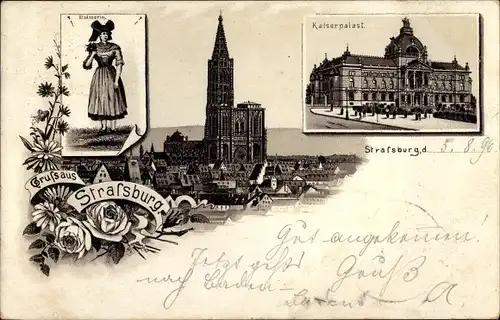 Elsässerin.
Kaiserpalast.
Strafsburg, d. 5.8.96
Gruss aus
Strafsburg.
Gut angekommen!
Jetzt geht's Gruß
nach Baden-
A